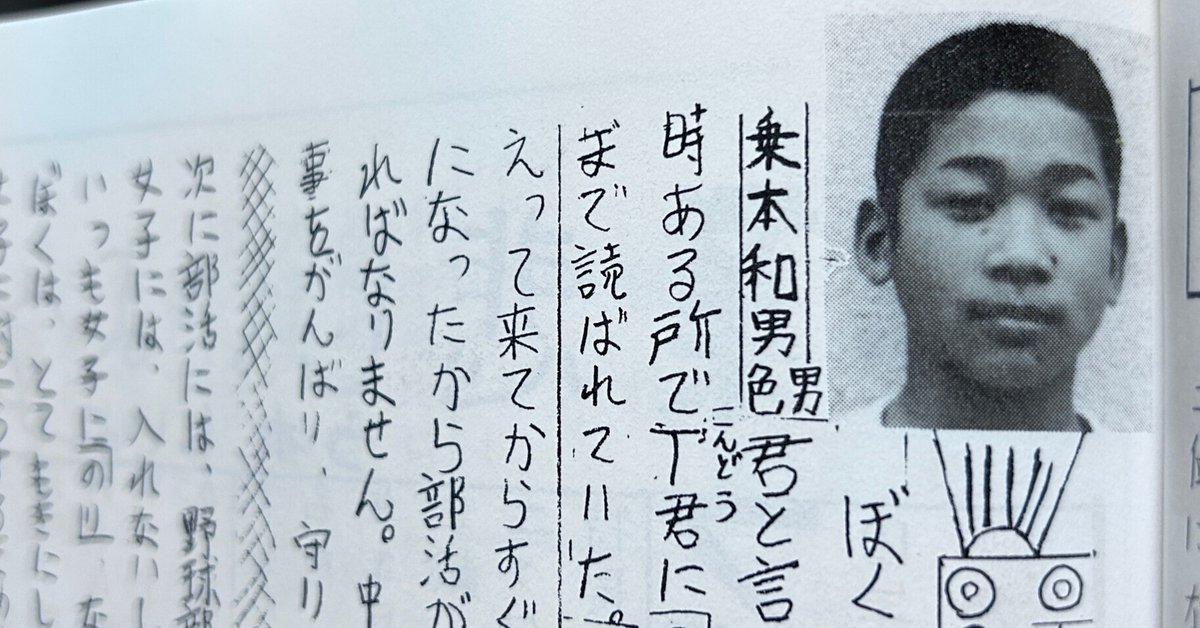 ぼく
乗本和男色男君と言
時ある所で丁君に
こんどう
まで読ばれていた。
えって来てからすぐ
になったから部活が
ればなりません。中
事をがんばり、守り
次に部活には、野球部
女子には、入れないし
いっも女子に「の」、な
ぼくは、とてもきにし